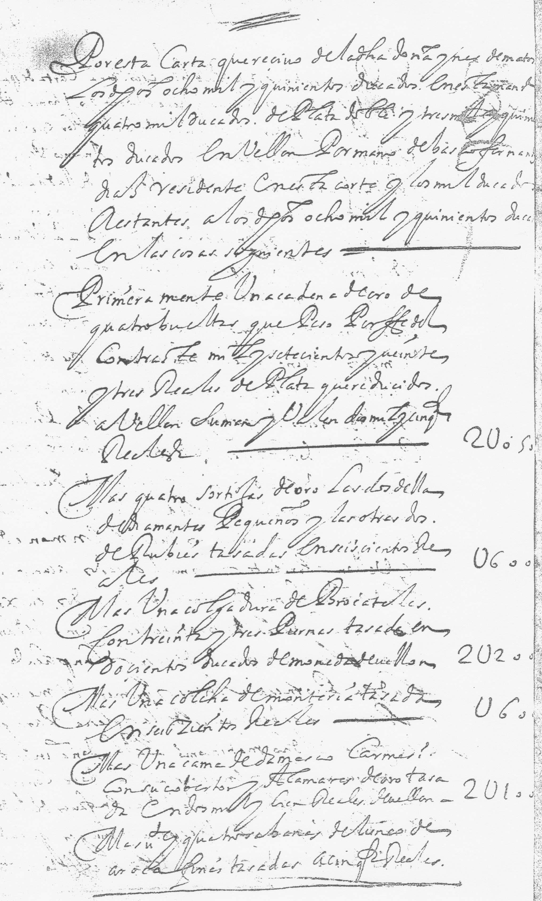 Por esta Carta que recivo de la dha doña ynez de
los dhos ocho mil y quinientos ducados En esta
quatro mil ducados de Plata doble y tres mil y
tos ducados En Vellon Por mano de
residente En esta corte y los mil ducados
Restantes a los dhos ocho mil y quinientos
En las cosas siguientes
Primeramente Una cadena de oro de
quatro bueltas que Peso Por ffe del
Contraste mil y setecientos y veinte
y tres Reales de Plata que reducidos
a Vellon Suman y Valen dos mil y cinqta
Reales
2U05
Mas quatro sortijas de oro Las dos dellas
de diamantes Pequeños y las otras dos
de Rubies tasadas En seiscientos Re
ales
U600
Mas Una colgadura de Brocateles
Con treinta y tres Piernas tasada en
Docientos ducados de moneda de vellon
2U200
Mas Una colcha de monteria tasada
En seiszientos Reales
U60
Mas Una cama de damasco Carmesi
Con su cobertor y Alamares de oro tasa
da En dos mil y cien Reales de vellon
2U100
Mas y quatro sabanas de lienco de
tasadas a cinqta Reales